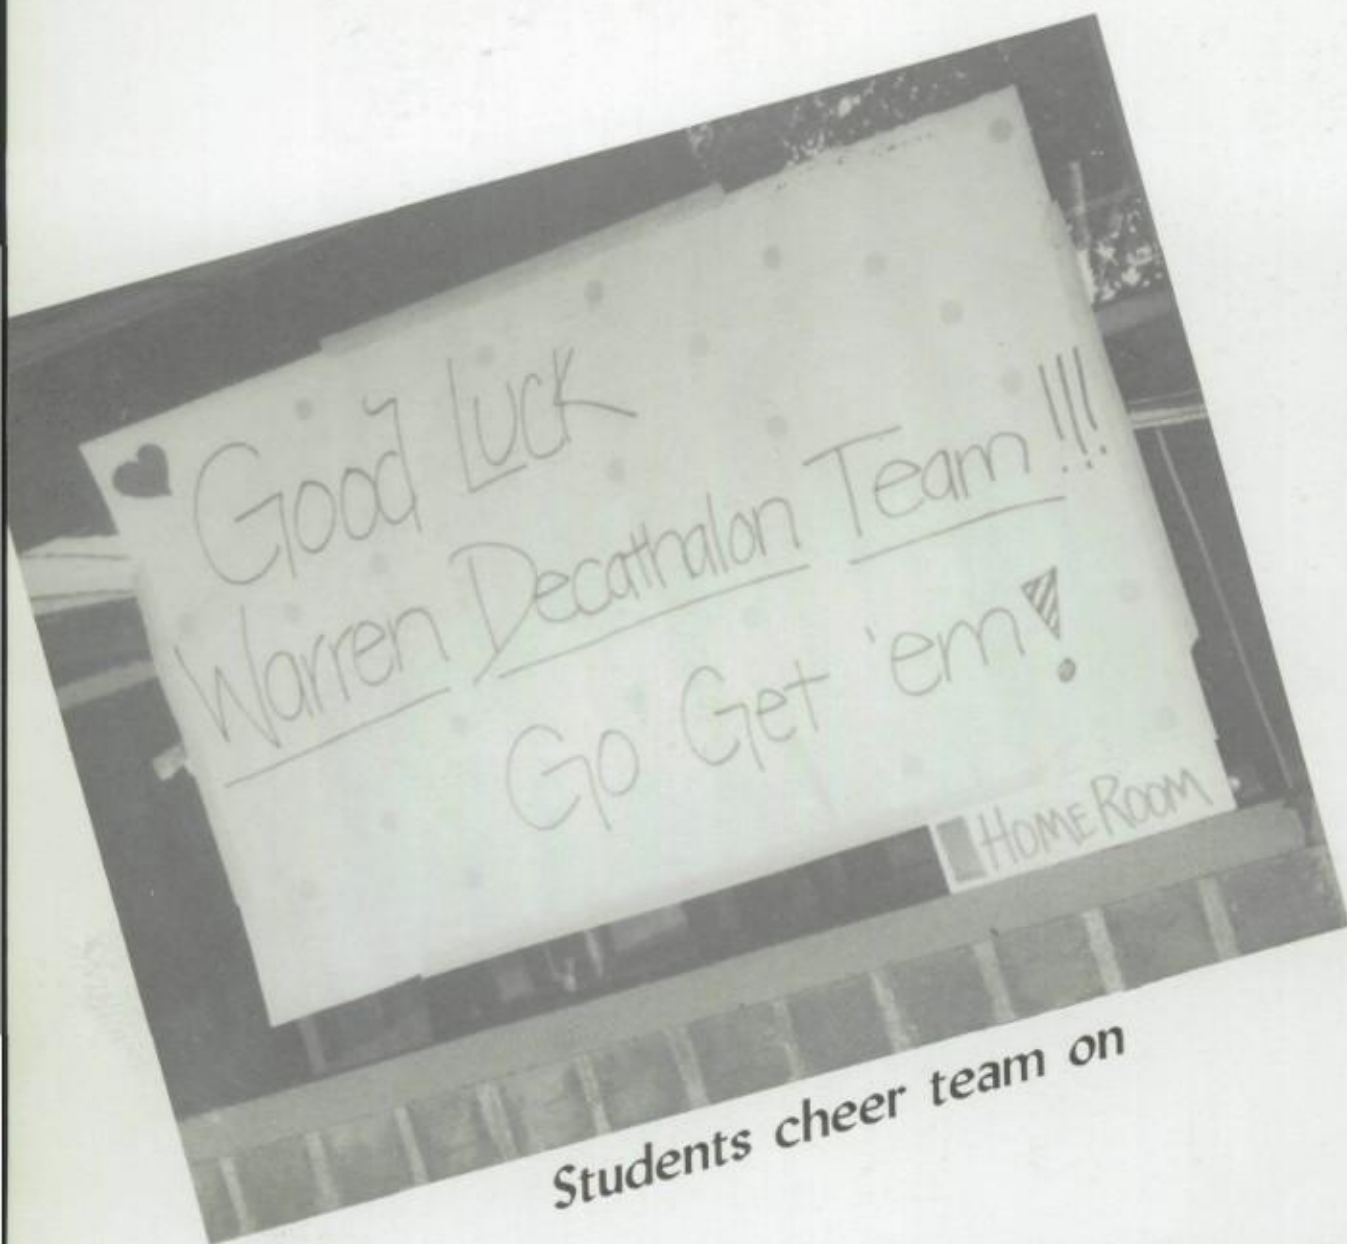 Good Luck
Warren Decathalon Team!!!
Go Get 'em!
HOME ROOM
Students cheer team on